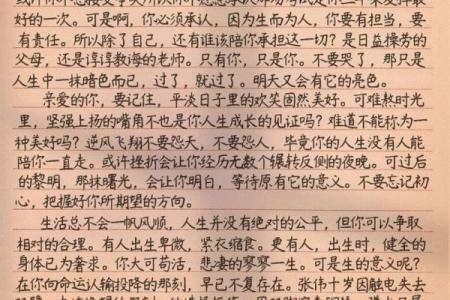 好的一次。可是啊，你必须承认，因为生而为人，你要有担当，要
有责任。所以除了自己，还有谁该陪你承担这一切？是日益操劳的
父母，还是谆谆教诲的老师。只有你，只是你。不要哭了，那只是
人生中一抹暗色而已，过了，就过了。明天又会有它的亮色。
亲爱的你，要记住，平淡日子里的欢笑固然美好。可难熬时光
里，坚强上扬的嘴角不也是你人生成长的见证吗？难道不能称为一
种美好吗？逆风飞翔不要怨天，不要怨人，毕竟你的人生没有人能
陪你一直走。或许挫折会让你经历无数个辗转反侧的夜晚。可过后
的黎明，那抹曙光，会让你明白，等待原有它的意义。不要忘记初
心，把握好你所期望的方向。
生活总不会一帆风顺，人生并没有绝对的公平，但你可以争取
相对的合理。有人出生卑微，紧衣缩食。更有人，出生时，健全的
身体已为奢求。你大可苟活，悲凄的寥寥一生。可是生的意义呢？
在你向命运认输投降的那刻，早已不复存在。张伟十岁因触电失去